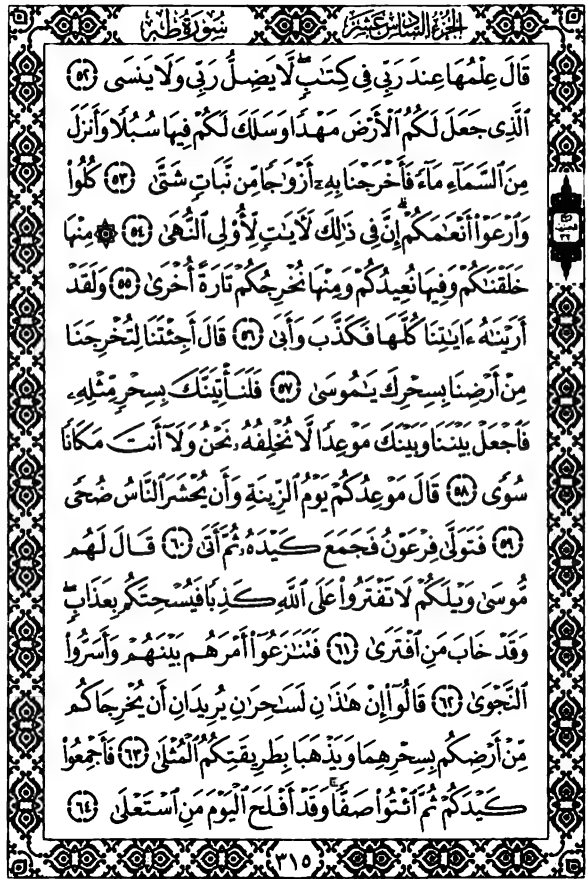 سُورَةُ طه الجُزءُ السَّادِسَ عَشَرَ
قَالَ عِلْمُهَا عِندَ رَبِّى فِى كِتَٰبٍ ۖ لَّا يَضِلُّ رَبِّى وَلَا يَنسَى ﴿٥٢﴾
ٱلَّذِى جَعَلَ لَكُمُ ٱلْأَرْضَ مَهْدًا وَسَلَكَ لَكُمْ فِيهَا سُبُلًا وَأَنزَلَ
مِنَ ٱلسَّمَآءِ مَآءً فَأَخْرَجْنَا بِهِۦٓ أَزْوَٰجًا مِّن نَّبَاتٍ شَتَّىٰ ﴿٥٣﴾ كُلُوا۟
وَٱرْعَوْا۟ أَنْعَٰمَكُمْ ۗ إِنَّ فِى ذَٰلِكَ لَءَايَٰتٍ لِّأُو۟لِى ٱلنُّهَىٰ ﴿٥٤﴾ ۞ مِنْهَا
خَلَقْنَٰكُمْ وَفِيهَا نُعِيدُكُمْ وَمِنْهَا نُخْرِجُكُمْ تَارَةً أُخْرَىٰ ﴿٥٥﴾ وَلَقَدْ
أَرَيْنَٰهُ ءَايَٰتِنَا كُلَّهَا فَكَذَّبَ وَأَبَىٰ ﴿٥٦﴾ قَالَ أَجِئْتَنَا لِتُخْرِجَنَا
مِنْ أَرْضِنَا بِسِحْرِكَ يَٰمُوسَىٰ ﴿٥٧﴾ فَلَنَأْتِيَنَّكَ بِسِحْرٍ مِّثْلِهِۦ
فَٱجْعَلْ بَيْنَنَا وَبَيْنَكَ مَوْعِدًا لَّا نُخْلِفُهُۥ نَحْنُ وَلَآ أَنتَ مَكَانًا
سُوًى ﴿٥٨﴾ قَالَ مَوْعِدُكُمْ يَوْمُ ٱلزِّينَةِ وَأَن يُحْشَرَ ٱلنَّاسُ ضُحًى
﴿٥٩﴾ فَتَوَلَّىٰ فِرْعَوْنُ فَجَمَعَ كَيْدَهُۥ ثُمَّ أَتَىٰ ﴿٦٠﴾ قَالَ لَهُم
مُّوسَىٰ وَيْلَكُمْ لَا تَفْتَرُوا۟ عَلَى ٱللَّهِ كَذِبًا فَيُسْحِتَكُم بِعَذَابٍ ۖ
وَقَدْ خَابَ مَنِ ٱفْتَرَىٰ ﴿٦١﴾ فَتَنَٰزَعُوٓا۟ أَمْرَهُم بَيْنَهُمْ وَأَسَرُّوا۟
ٱلنَّجْوَىٰ ﴿٦٢﴾ قَالُوٓا۟ إِنْ هَٰذَٰنِ لَسَٰحِرَٰنِ يُرِيدَانِ أَن يُخْرِجَاكُم
مِّنْ أَرْضِكُم بِسِحْرِهِمَا وَيَذْهَبَا بِطَرِيقَتِكُمُ ٱلْمُثْلَىٰ ﴿٦٣﴾ فَأَجْمِعُوا۟
كَيْدَكُمْ ثُمَّ ٱئْتُوا۟ صَفًّا ۚ وَقَدْ أَفْلَحَ ٱلْيَوْمَ مَنِ ٱسْتَعْلَىٰ ﴿٦٤﴾
٣١٥